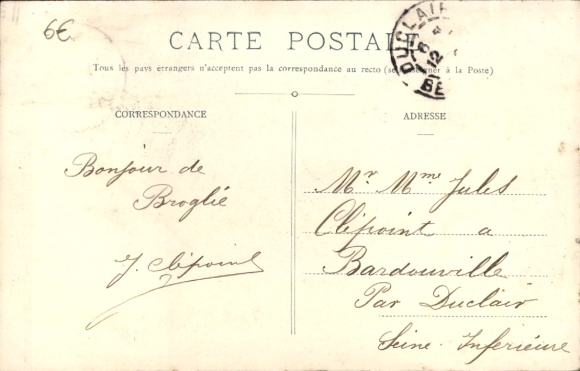 6€
CARTE POSTALE
Tous les pays étrangers n'acceptent pas la correspondance au recto (se renseigner à la Poste)
CORRESPONDANCE
ADRESSE
Bonjour de
Broglie
J. Clépoint
Mr Mme Jules
Clépoint a
Bardouville
Par Duclair
Seine-Inferieure
DUCLAIR
8
12